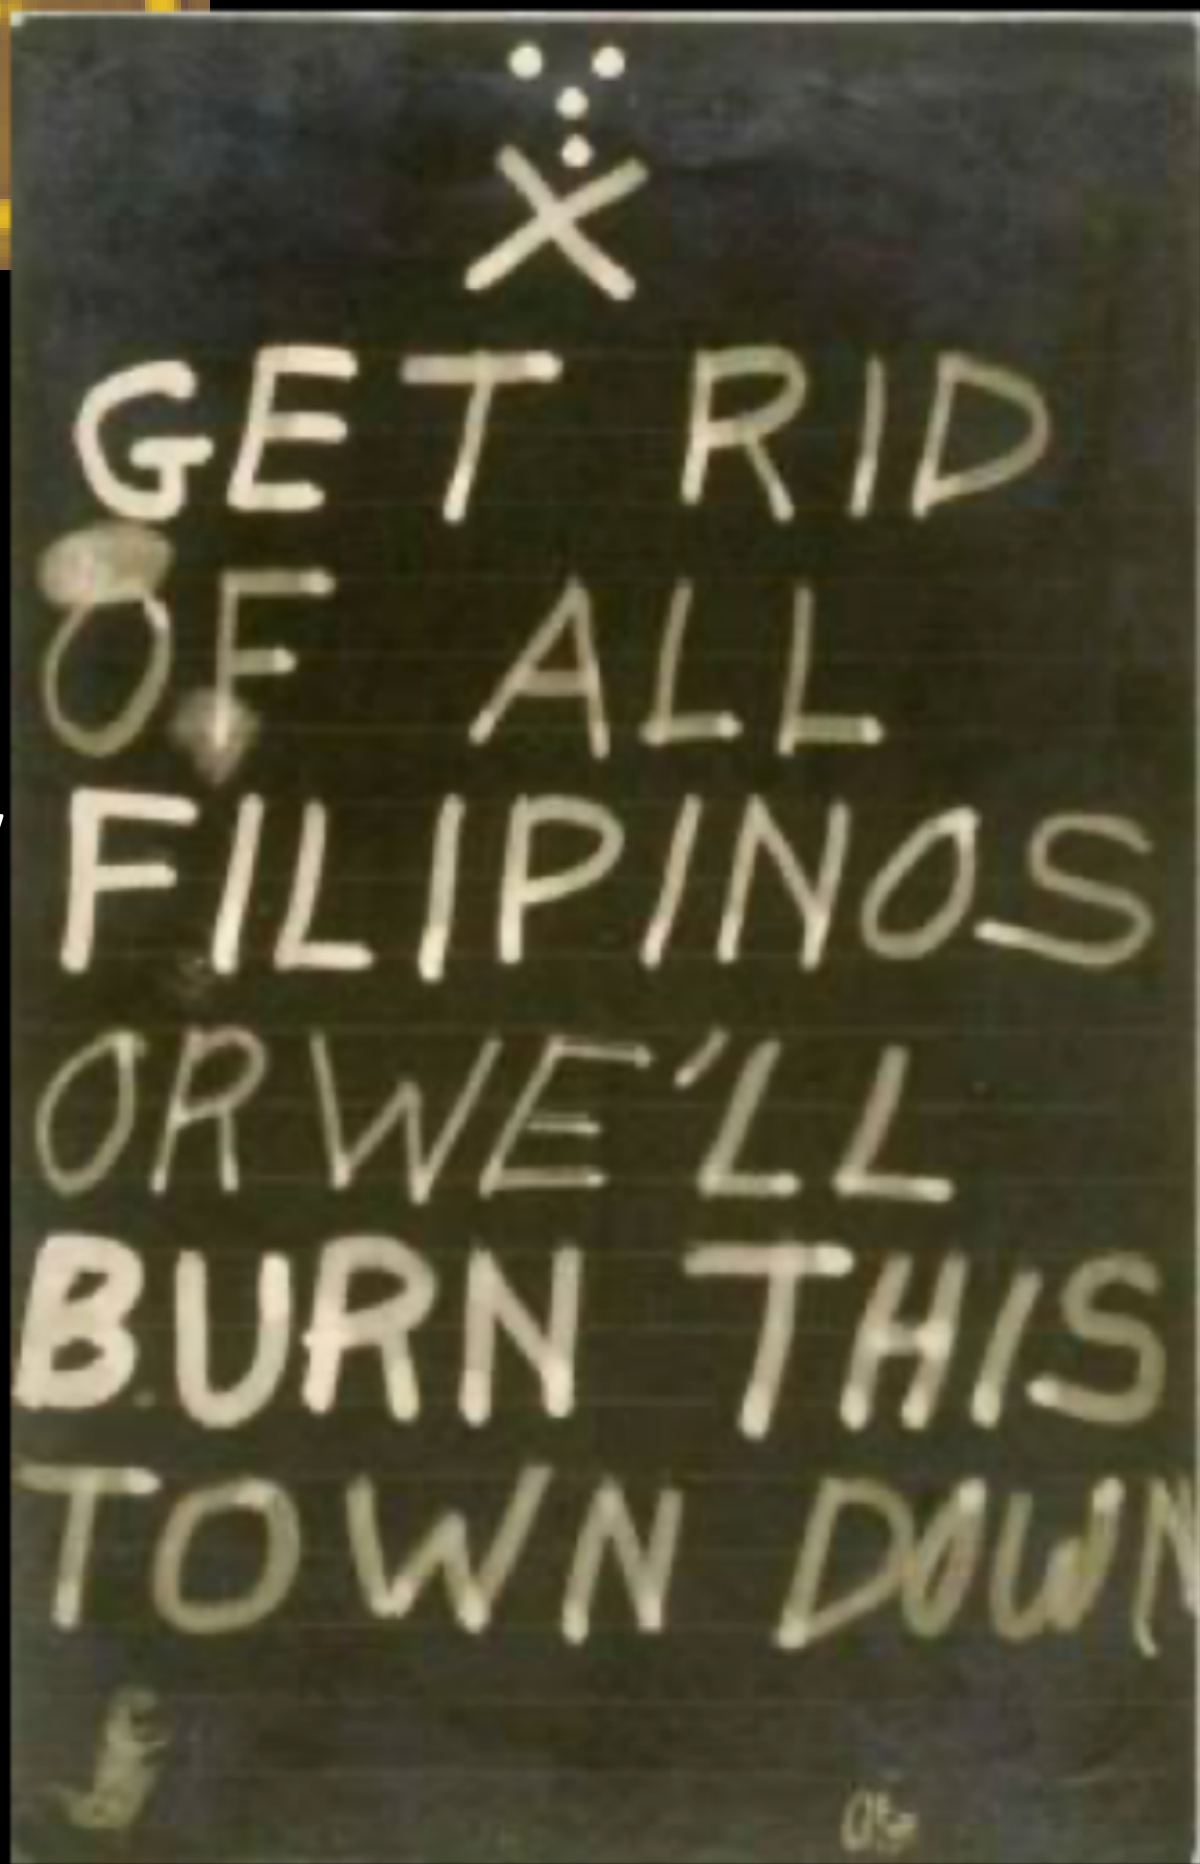 X
GET RID
OF ALL
FILIPINOS
OR WE'LL
BURN THIS
TOWN DOWN